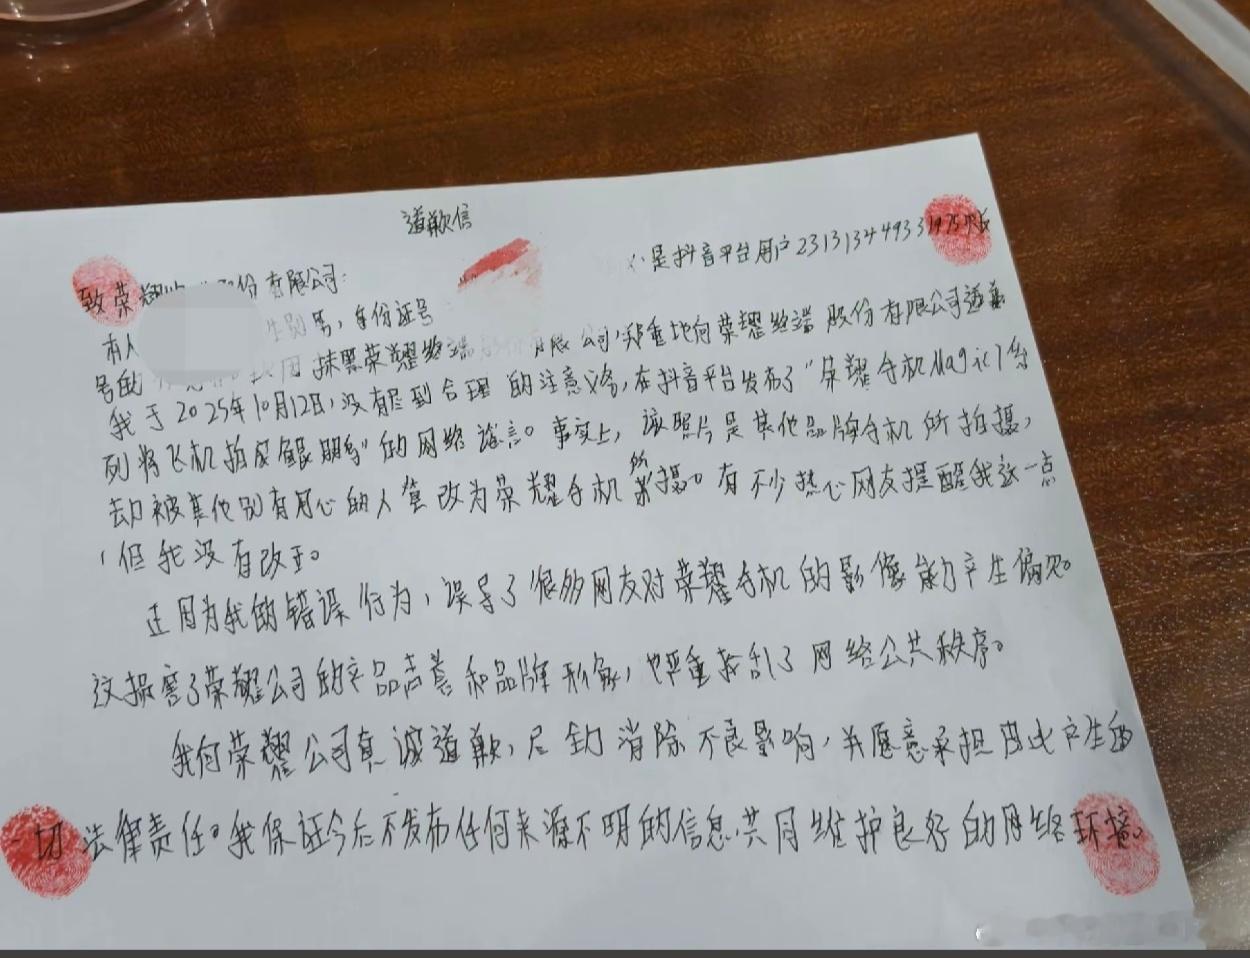 道歉信
致荣耀 股份有限公司：
本人 性别男，身份证号 是抖音平台用户2313134493319
号的 抹黑荣耀终端 有限公司，郑重地向荣耀终端股份有限公司道歉
我于2025年10月12日，没有尽到合理的注意义务，在抖音平台发布了"荣耀手机Magic7系
列将飞机拍成鲲鹏"的网络谣言。事实上，该照片是其他品牌手机所拍摄，
却被其他别有用心的人篡改为荣耀手机所摄。有不少热心网友提醒我这一点
，但我没有改正。
正因为我的错误行为，误导了很多网友对荣耀手机的影像能力产生偏见。
这损害了荣耀公司的产品声誉和品牌形象，也严重扰乱了网络公共秩序。
我向荣耀公司真诚道歉，尽力消除不良影响，并愿意承担因此产生的
一切法律责任。我保证今后不发布任何来源不明的信息，共同维护良好的网络环境。